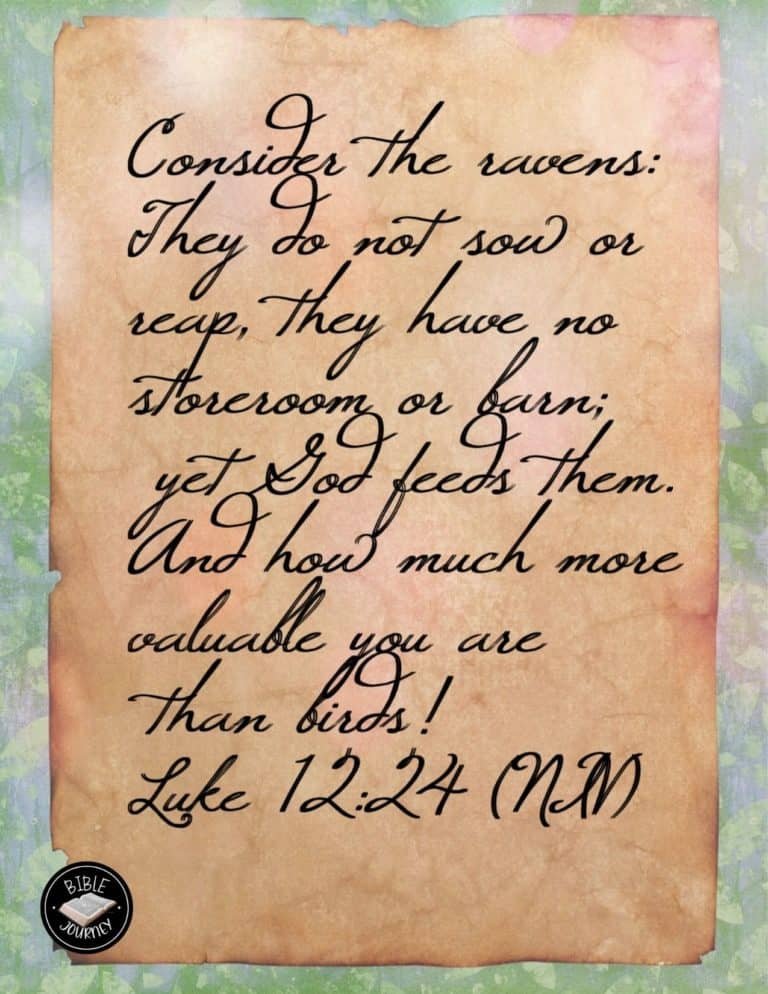 Consider the ravens:
They do not sow or
reap, they have no
storeroom or barn;
yet God feeds them.
And how much more
valuable you are
than birds!
Luke 12:24 (NIV)
BIBLE
JOURNEY